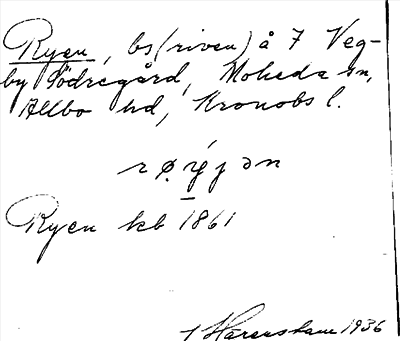 Ryen, bs (riven) å 7 Veg-
by Södregård, Moheda sn,
Allbo hd, Kronobs l.
Ryen kb 1861
1936